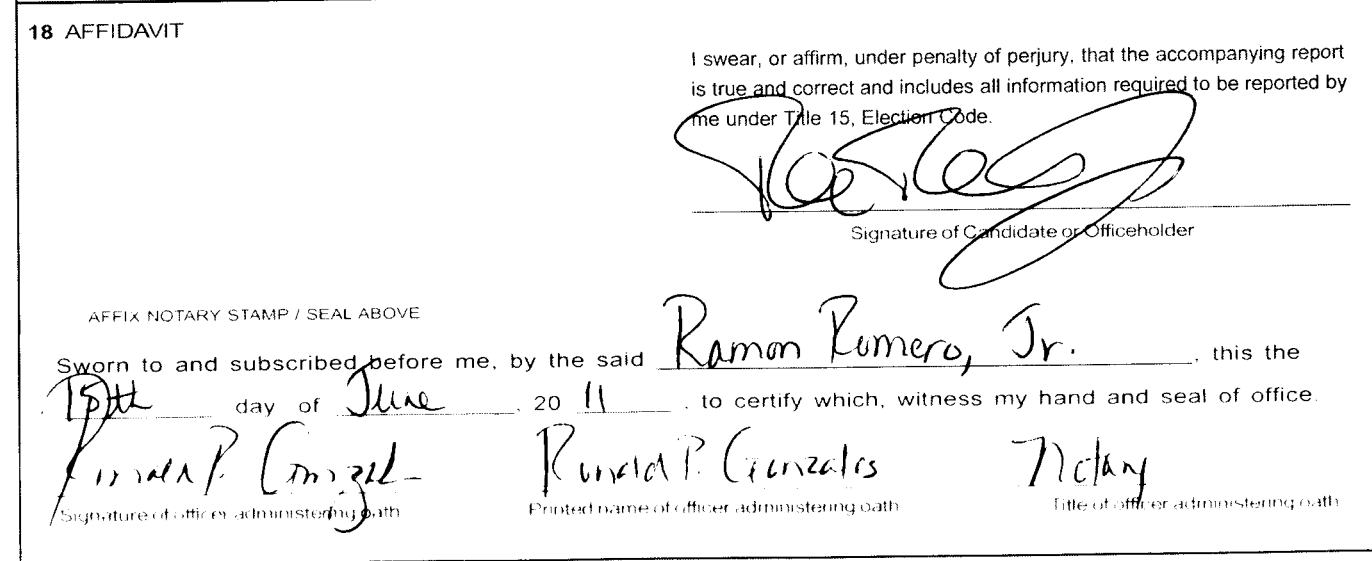 18 AFFIDAVIT
I swear, or affirm, under penalty of perjury, that the accompanying report
is true and correct and includes all information required to be reported by
me under Title 15, Election Code.
Signature of Candidate or Officeholder
AFFIX NOTARY STAMP / SEAL ABOVE
Sworn to and subscribed before me, by the said Ramon Romero, Jr. , this the
15th day of June , 20 11 , to certify which, witness my hand and seal of office.
Ronald P. Gonzales Ronald P. Gonzales Notary
Signature of officer administering oath Printed name of officer administering oath Title of officer administering oath